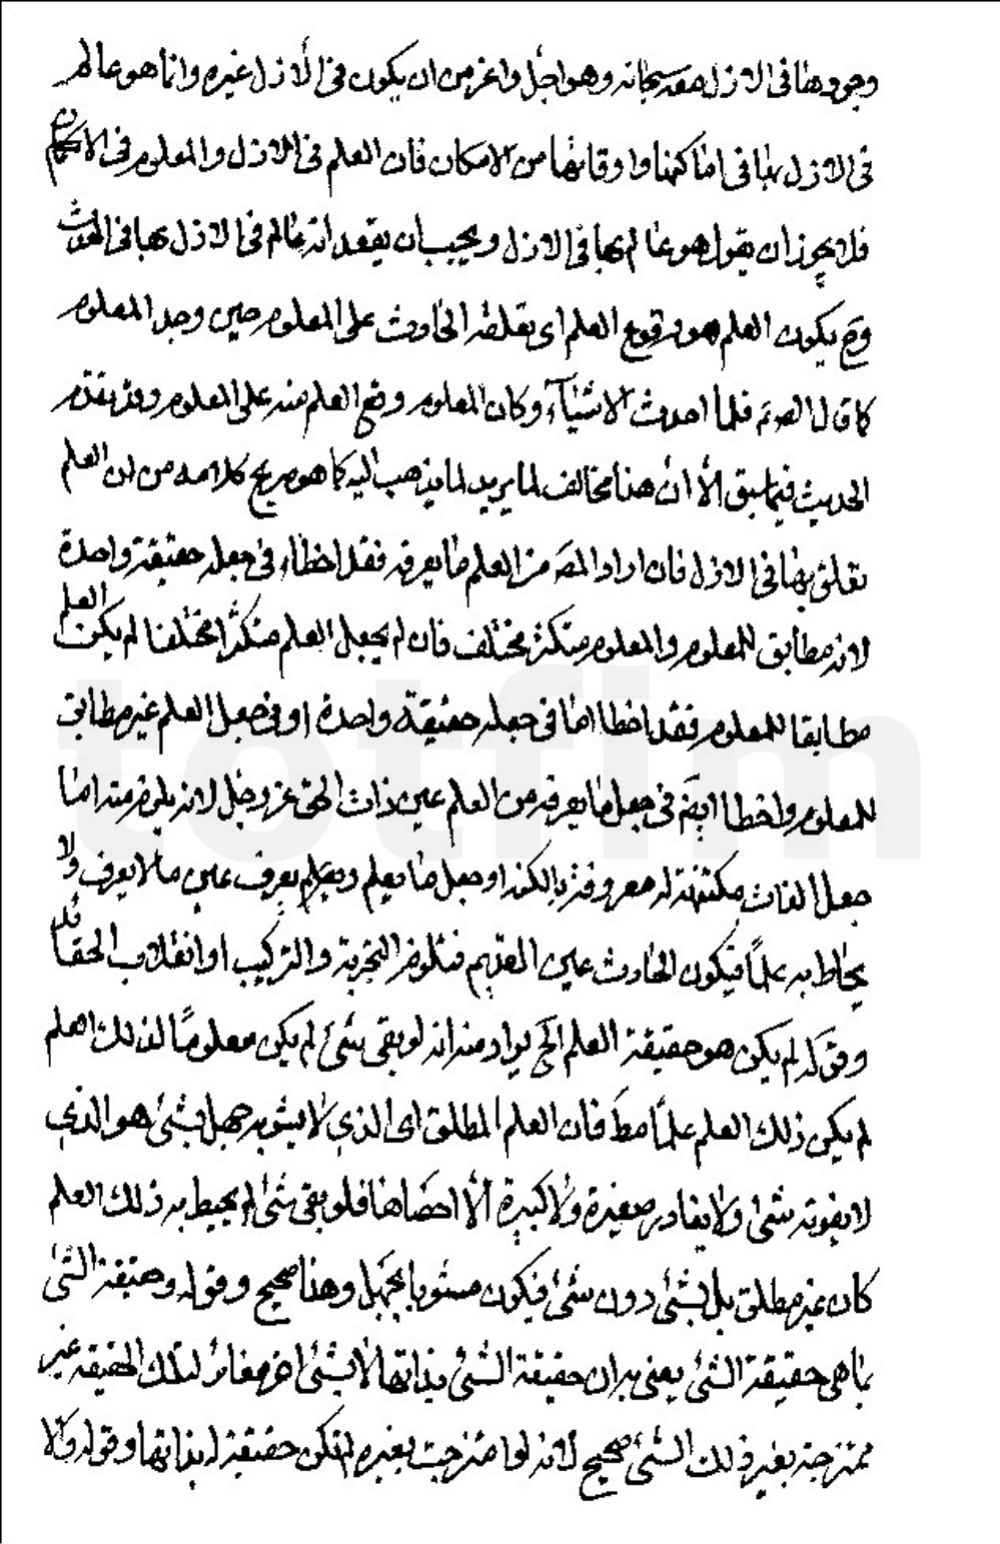 وجودها فى الازل معه سبحانه وهو اجل واعز من ان يكون فى الازل غيره وانما هو عالم
فى الازل بها فى اماكنها واوقاتها من الامكان فان العلم فى الازل والمعلوم فى الامكان
فلا يجوز ان يقول هو عالم بها فى الازل ويجب ان يعتقد انه عالم فى الازل بها فى الحدث
وح يكون العلم هو وقوع العلم اى تعلقه الحادث على المعلوم حين وجد المعلوم
كما قال الص ع فلما احدث الاشياء وكان المعلوم وقع العلم منه على المعلوم وقد تقدم
الحديث فيما سبق الا ان هذا مخالف لما يريد لما يذهب اليه كما هو صريح كلامه من ان العلم
تعلق بها فى الازل فان اراد المص من العلم ما يعرفه فقد اخطاء فى جعله حقيقة واحدة
لانه مطابق للمعلوم والمعلوم متكثر مختلف فان لم يجعل العلم متكثرا مختلفا لم يكن العلم
مطابقا للمعلوم فقد اخطا اما فى جعله حقيقة واحدة او فى جعل العلم غير مطابق
للمعلوم واخطا ايضً فى جعل ما يعرفه من العلم عين ذات الحق عز وجل لانه يلزم منه اما
جعل الذات مكتنهة له معروفة بالكنه او جعل ما يعلم ويعرف عين ما لا يعرف ولا
يحاط به علماً فيكون الحادث عين القديم فتلزم التجزية والتركيب او انقلاب الحقائق
وقوله لم يكن هو حقيقة العلم الخ يراد منه انه لو بقى شئ لم يكن معلوماً لذلك العلم
لم يكن ذلك العلم علماً مط فان العلم المطلق اى الذى لا يشوبه جهل بشئ هو الذى
لا يفوته شئ ولا يغادر صغيرة ولا كبيرة الا احصاها فلو بقى شئ لم يحيط به ذلك العلم
كان غير مطلق بل بشئ دون شئ فيكون مشوبا بجهل وهذا صحيح وقوله وحقيقة الشئ
بما هى حقيقة الشئ يعنى به ان حقيقة الشئ بذاتها لا بشئ اخر مغائر لتلك الحقيقة غير
ممتزجة بغير ذلك الشئ صحيح لانه لو امتزجت بغيره لم تكن حقيقة له بذاتها وقوله والا